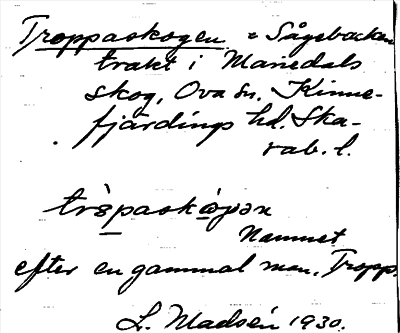 Troppaskogen = Sågebacken
trakt i Mariedals
skog, Ova sn. Kinne-
fjärdings hd. Ska-
rab. l.
Namnet
efter en gammal man, Tropp.
L. Madsén 1930.